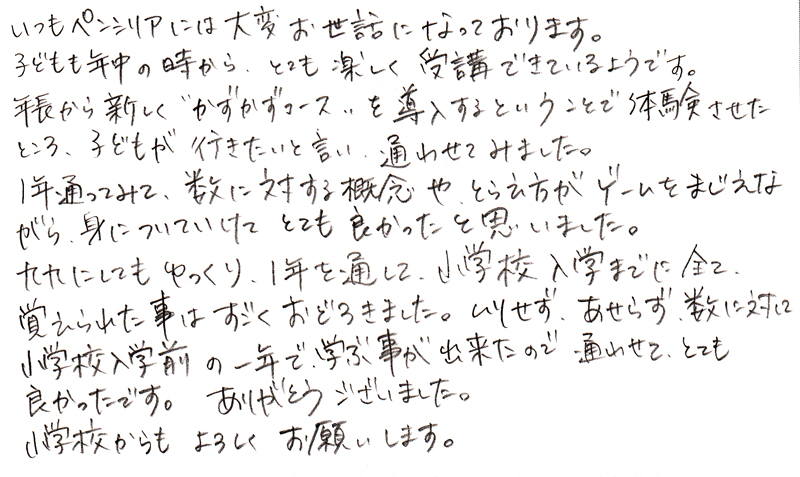 いつもペンシリアには大変お世話になっております。
子どもも年中の時から、とても楽しく受講できているようです。
年長から新しく"かずかずコース"を導入するということで体験させた
ところ、子どもが行きたいと言い、通わせてみました。
1年通ってみて、数に対する概念や、とらえ方がゲームをまじえな
がら、身についていけて とても良かったと思いました。
九九にしてもゆっくり、1年を通して、小学校入学までに全て、
覚えられた事はすごくおどろきました。ムリせず、あせらず、数に対して
小学校入学前の一年で、学ぶ事が出来たので 通わせて、とても
良かったです。 ありがとうございました。
小学校からも よろしく お願いします。